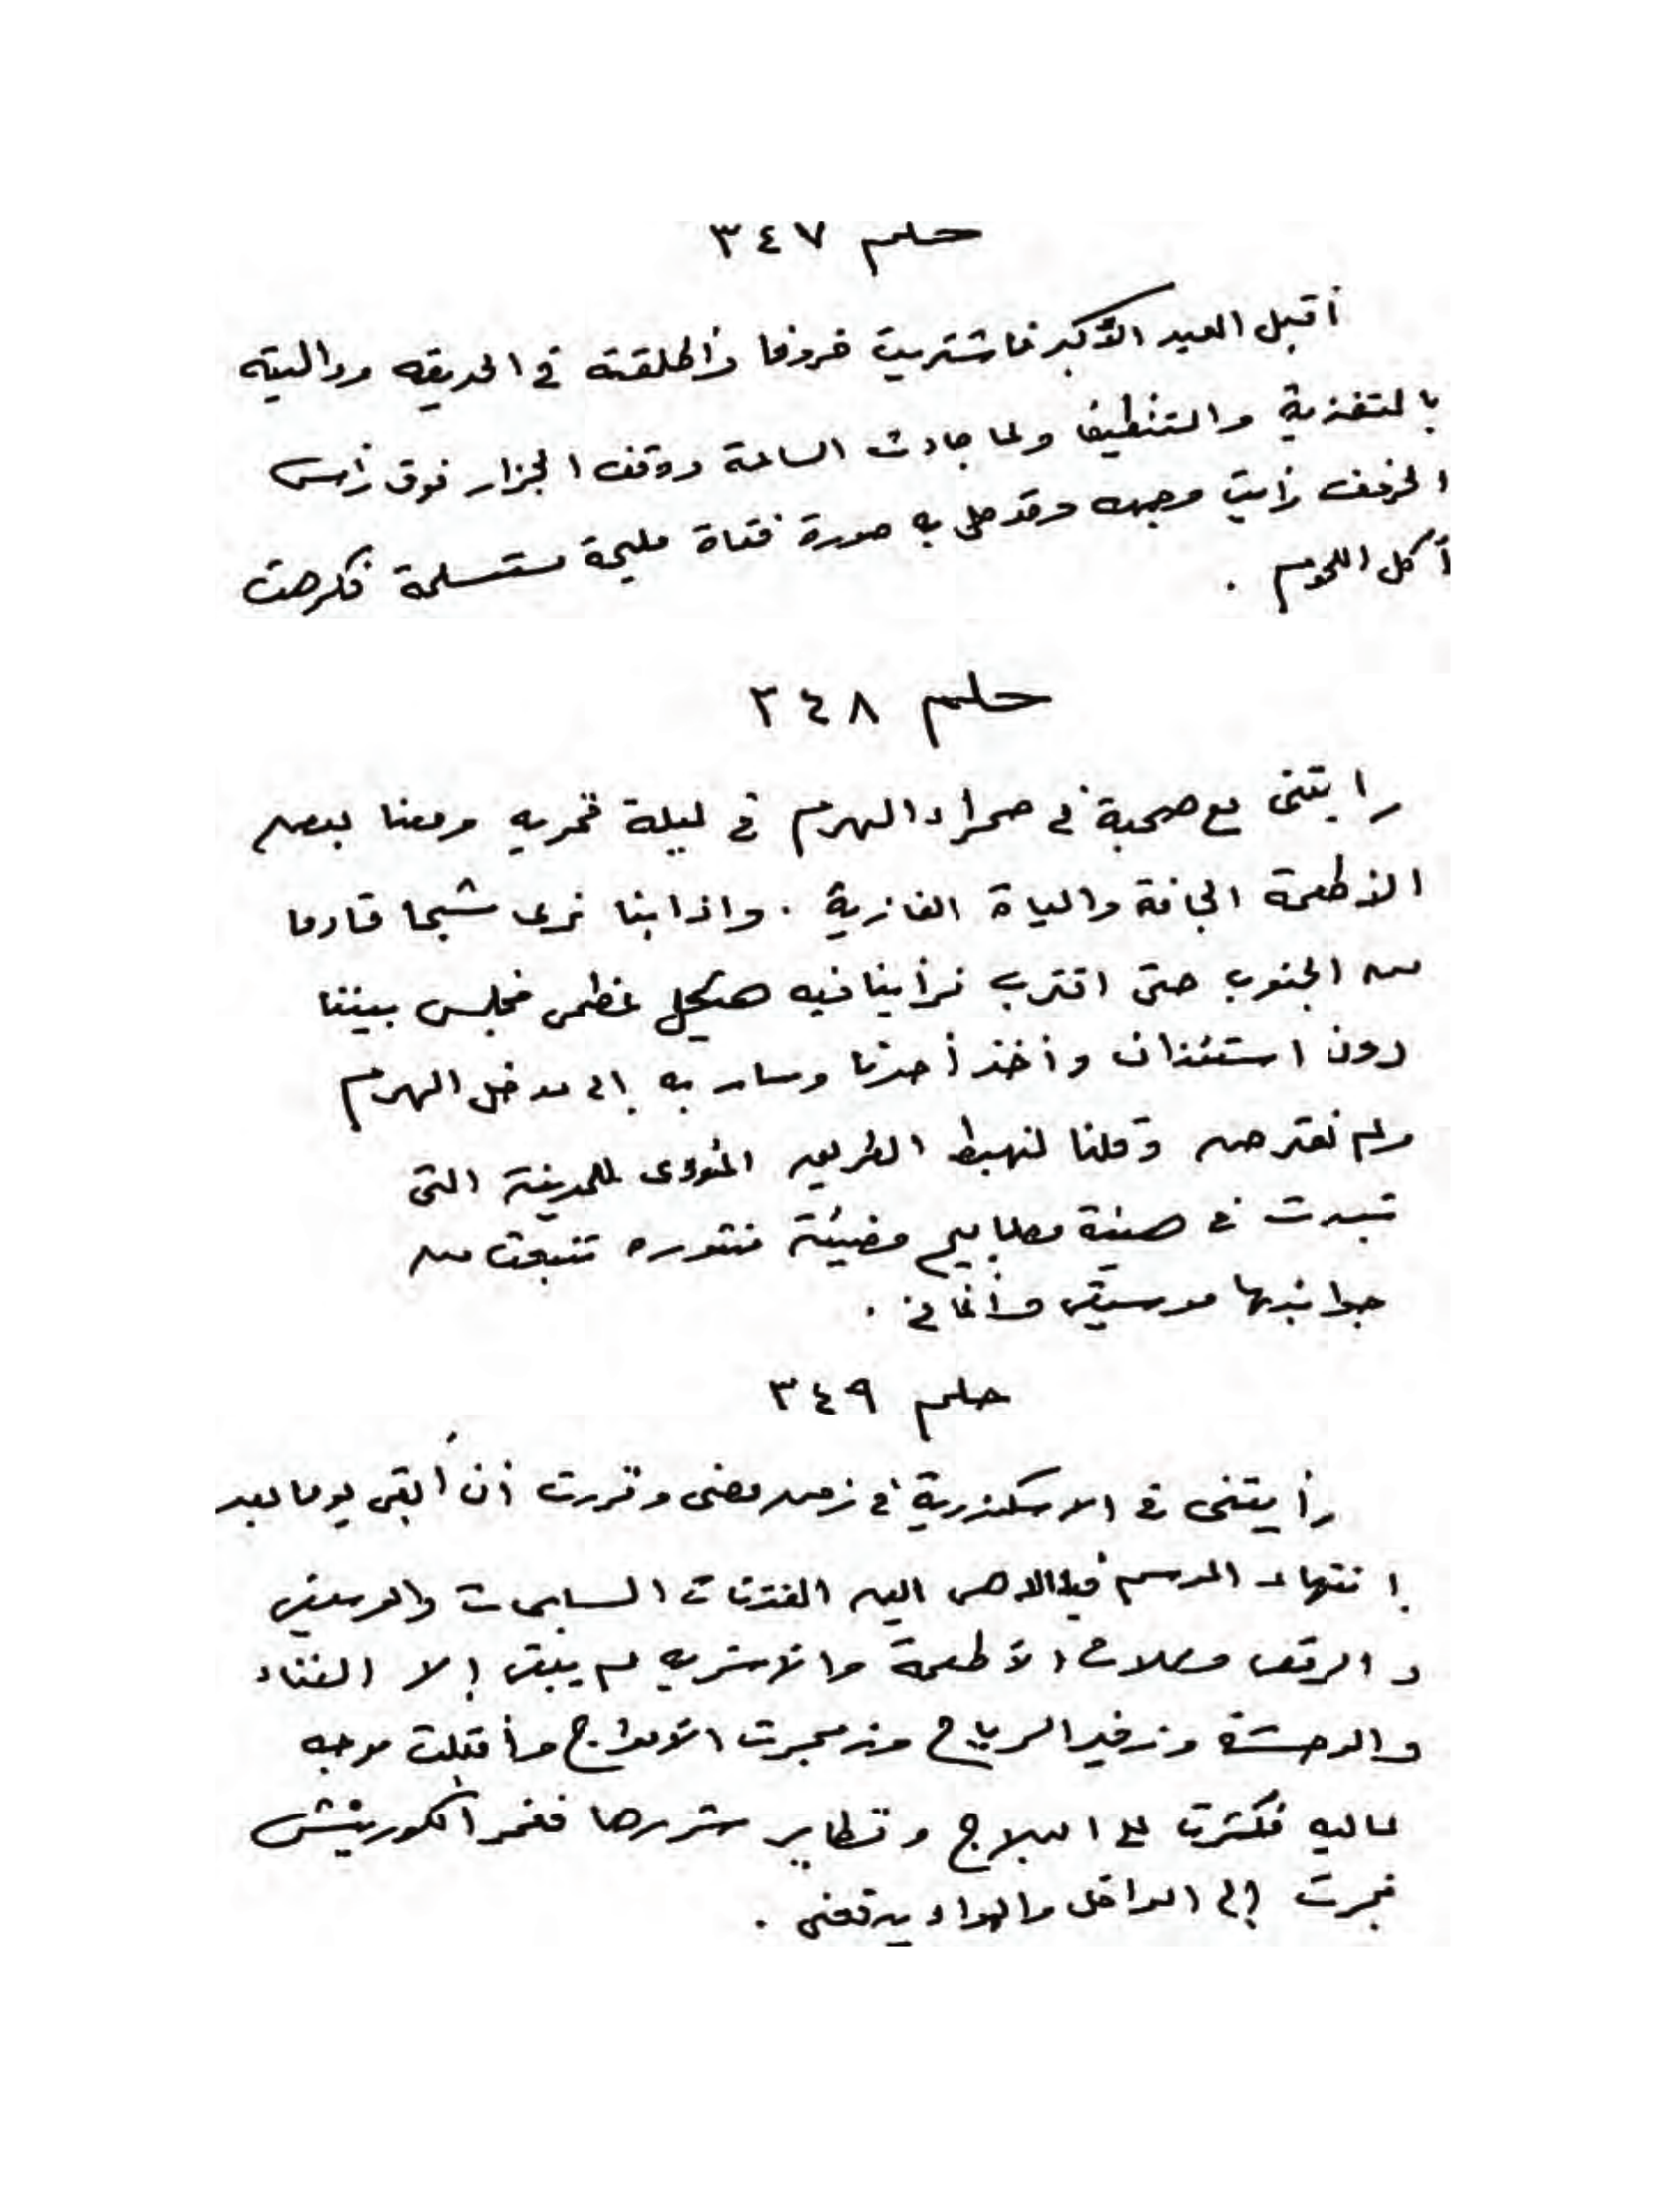 حلم ٣٤٧
أقبل العيد الأكبر فاشتريت خروفا وأطلقته في الحديقه وواليته
بالتغذية والتنظيف ولما جاءت الساعة ووقف الجزار فوق رأس
الخروف رأيت وجهه وقد حلى به صورة فتاة مليحة مستسلمة فكرهت
أكل اللحوم .
حلم ٣٤٨
رايتنى مع صحبة في صحراء الهرم في ليلة قمريه ومعنا بعض
الأطعمة الجافة والمياة الغازية . واذا بنا نرى شبحا قادما
من الجنوب حتى اقترب فرأينا فيه هيكل عظمى فجلس بيننا
دون استئذان وأخذ أحدنا وسار به إلى مدخل الهرم
ولم نعترض وقلنا لنهبط الطريق المؤدى للمدينة التى
تبدت في هيئة مصابيح مضيئة منثوره تنبعث من
جوانبها موسيقى وأغاني .
حلم ٣٤٩
رأيتنى في الاسكندرية في زمن مضى وقررت أن أبقى يوما بعد
إنتهاء الموسم أين الفتيات السابحات والموسيقى
و الرقص ومحلات الأطعمة والأشربه لم يبق إلا الفناء
والوحشة وزفير الرياح وزمجرت الأمواج وأقبلت موجه
عاليه فكسرت على البلاج وتطاير شررها فغمر الكورنيش
فجرت إلى الداخل والهواء يدفعنى .